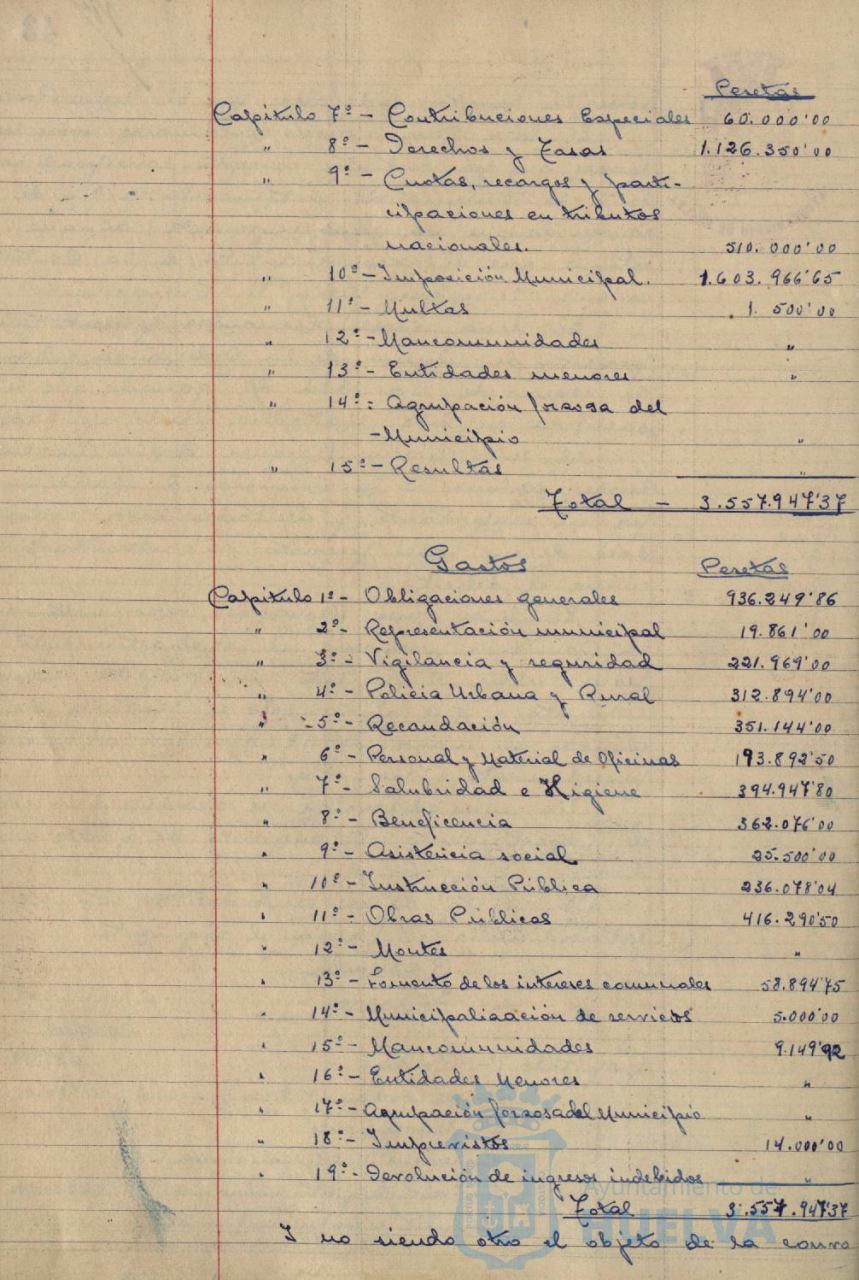 Pesetas
Capítulo 7º - Contribuciones Especiales 60.000'00
" 8º - Derechos y Tasas 1.126.350'00
" 9º - Cuotas, recargos y parti-
cipaciones en tributos
nacionales. 510.000'00
" 10º - Imposición Municipal. 1.603.966'65
" 11º - Multas 1.500'00
" 12º - Mancomunidades "
" 13º - Entidades menores "
" 14º - Agrupación forzosa del
Municipio "
" 15º - Resultas "
Total - 3.557.947'37
Gastos Pesetas
Capítulo 1º - Obligaciones generales 936.249'86
" 2º - Representación municipal 19.861'00
" 3º - Vigilancia y seguridad 221.969'00
" 4º - Policía Urbana y Rural 312.894'00
" 5º - Recaudación 351.144'00
" 6º - Personal y Material de Oficinas 193.892'50
" 7º - Salubridad e Higiene 394.947'80
" 8º - Beneficencia 362.076'00
" 9º - Asistencia social 25.500'00
" 10º - Instrucción Pública 236.078'04
" 11º - Obras Públicas 416.290'50
" 12º - Montes "
" 13º - Fomento de los intereses comunales 58.894'75
" 14º - Municipalización de servicios 5.000'00
" 15º - Mancomunidades 9.149'92
" 16º - Entidades Menores "
" 17º - Agrupación forzosa del Municipio "
" 18º - Imprevistos 14.000'00
" 19º - Devolución de ingresos indebidos "
Total 3.557.947'37
Y no siendo otro el objeto de la convo
Ayuntamiento de
HUELVA